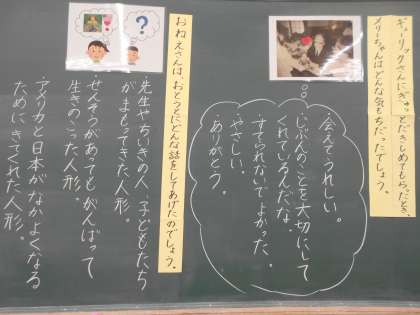 ギューリックさんにぎゅっとだきしめてもらったとき、
メリーちゃんはどんな気もちだったでしょう。
・会えてうれしい。
・じぶんのことを大切にして
くれているんだな。
・すてられないでよかった。
・やさしい。
・ありがとう。
おねえさんは、おとうとにどんな話をしてあげたのでしょう。
・先生やちいきの人、子どもたち
がまもってきた人形。
・せんそうがあってもがんばって
生きのこった人形。
・アメリカと日本がなかよくなる
ために きてくれた人形。
？